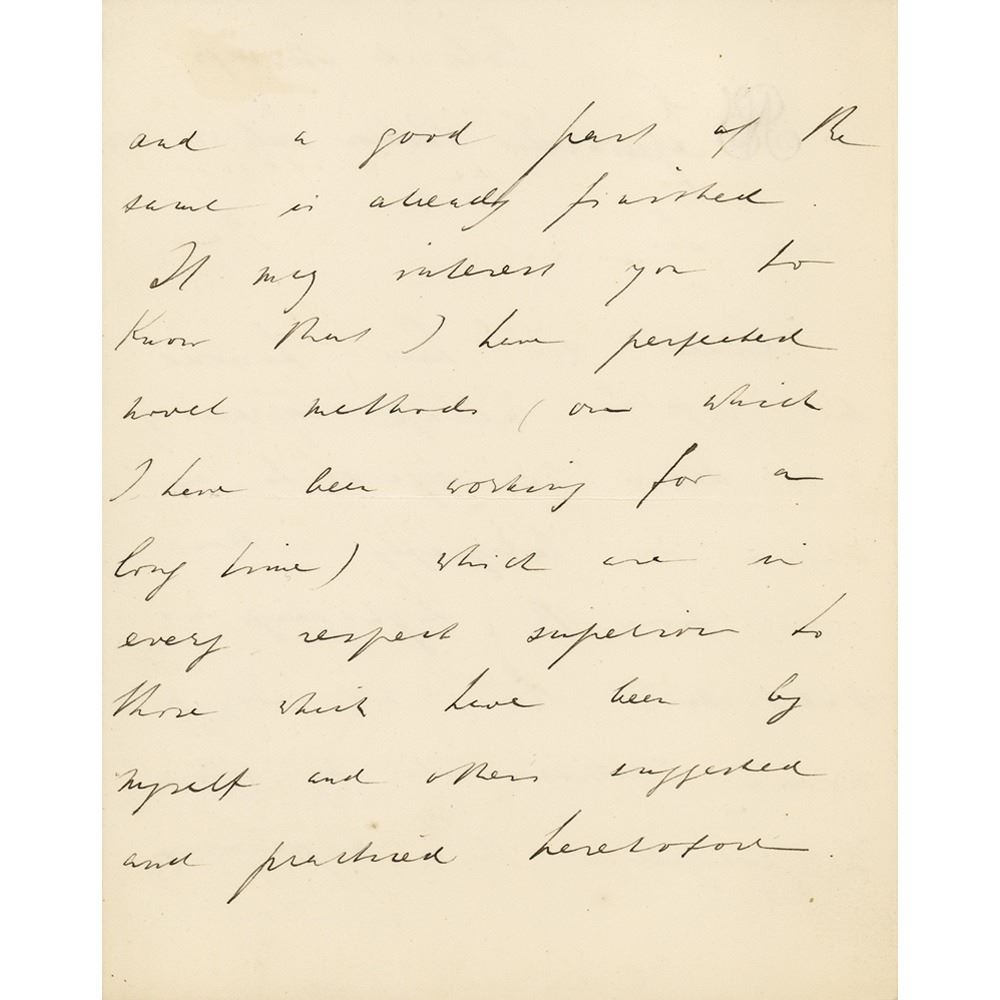 and a good part of the
same is already finished.
It may interest you to
Know that I have perfected
novel methods (on which
I have been working for a
long time) which are in
every respect superior to
those which have been by
myself and others suggested
and practised heretofore.